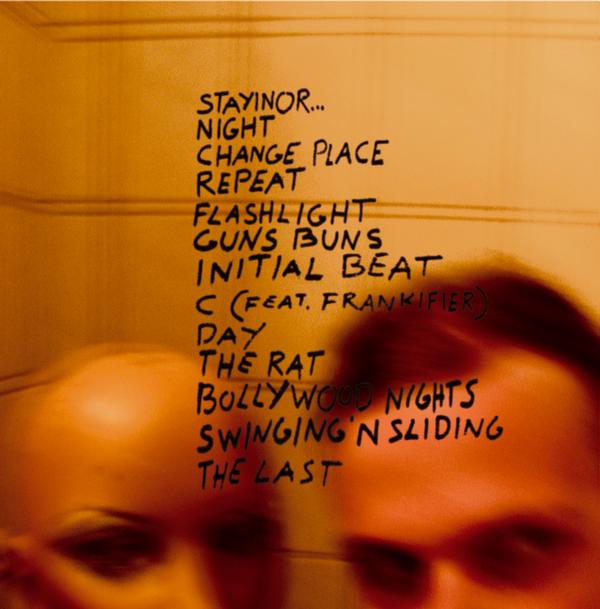 STAYINOR...
NIGHT
CHANGE PLACE
REPEAT
FLASHLIGHT
GUNS BUNS
INITIAL BEAT
C (FEAT. FRANKIFIER)
DAY
THE RAT
BOLLYWOOD NIGHTS
SWINGING'N SLIDING
THE LAST